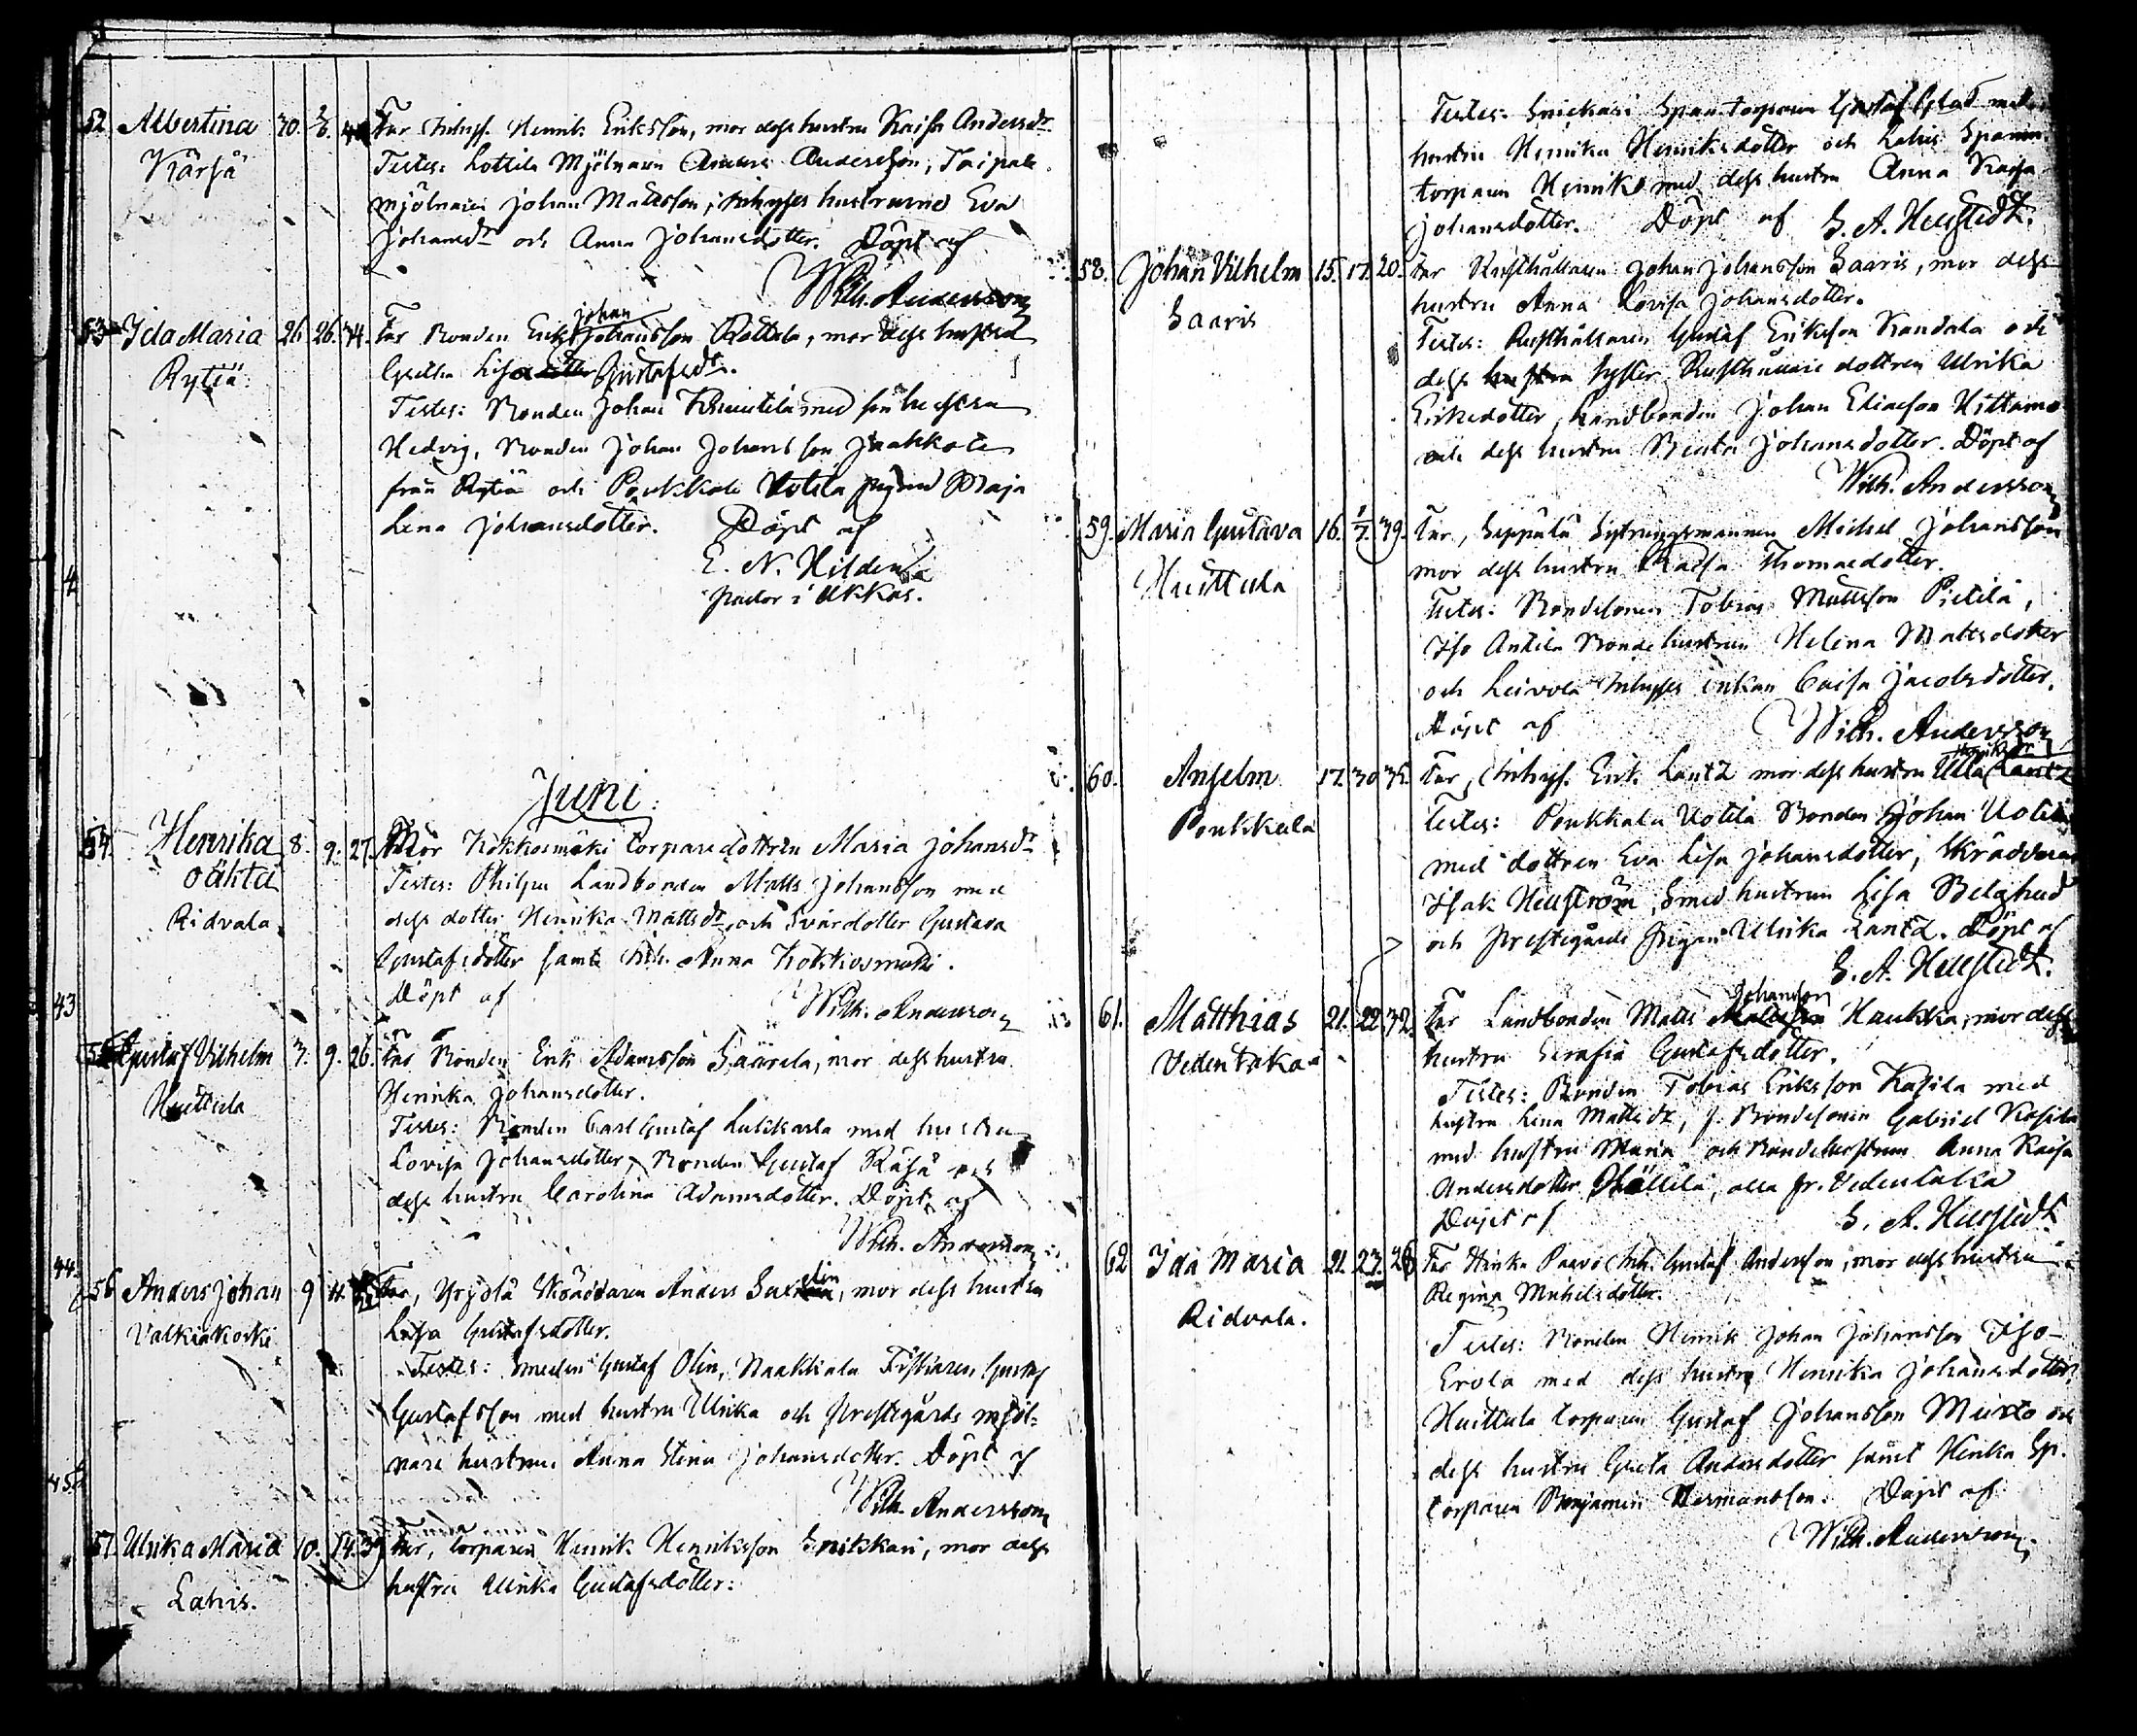 52 Albertina 30. 3. Far Inhys. Henrik Eriksson, mor dess hustru Kaisa Andersdr.
Kärsä Testes: Lottila Mjölnaren Anders Andersson, Taipale
mjölnaren Johan Mattsson, Inhyses hustrurne Eva
Johansdr och Anna Johansdotter. Döpt af
Wilh. Andersson
53 Ida Maria 26 26. 34. Far Bonden Erik Johan Johansson Röttola, mor dess hustru
Rytiä Gretha Lisa Gustafsdr.
Testes: Bonden Johan Knuutila med sin hustru
Hedvig, Bonden Johan Johansson Jaakkola
från Rytiä och Poukkala Uotila pigan Maja
Lena Johansdotter. Döpt af
E. N. Hilden
Pastor i Akkas.
4
Juni.
54. Henrika 8. 9. 27. Mor Kokkosmäki Torparedottren Maria Johansdr
oäkta Testes: Philpu Landbonden Matts Johansson med
Ridvala dess dotter Henrika Mattsdr och Svärdotter Gustava
Gustafsdotter samt Inh. Anna Kokkosmäki.
Döpt af Wilh. Andersson
43
55 Gustaf Vilhelm 7. 9. 26. Far Bonden Erik Adamsson Säärela, mor dess hustru
Huittula Henrika Johansdotter.
Testes: Bonden Carl Gustaf Lulikarla med hustru
Lovisa Johansdotter, Bonden Gustaf Räsä och
dess hustru Carolina Adamsdotter. Döpt af
Wilh. Andersson
44.
56 Anders Johan 9 11. Far, Yrjölä Skräddaren Anders mor dess hustru
Valkiakoski Lisa Gustafsdotter.
Testes: Smeden Gustaf Olin, Naakkala Fiskaren Gustaf
Gustafsson med hustru Ulrika och Prestegårds mjöl-
nare hustrun Anna Stina Johansdotter. Döpt af
45
Wilh. Andersson
57. Ulrika Maria 10. 14. 39 Far, Torparen Henrik Henriksson Snikkari, mor dess
Lahis. hustru Ulrika Gustafsdotter:
Testes: Snickari Span torparen Gustaf Glad med
hustru Henrika Henriksdotter och Lahis Spanm.
torparen Henrik med dess hustru Anna Kaisa
Johansdotter. Döpt af G. A. Hellstedt.
58. Johan Vilhelm 15. 17. 20. Far Rusthållaren Johan Johansson Saaris, mor dess
Saaris hustru Anna Lovisa Johansdotter.
Testes: Rusthållaren Gustaf Eriksson Kandala och
dess syster Rusthållaredottren Ulrika
Eriksdotter, Landbonden Johan Eliasson Hittamo
och dess hustru Beata Johansdotter. Döpt af
Wilh. Andersson
59. Maria Gustava 16. 1/7. 39. Far, Seppälä Sytningsmannen Michel Johansson
Huittula mor dess hustru Kaisa Thomasdotter.
Testes: Bondesonen Tobias Mattsson Pietila,
Iso Anttila Bondehustrun Helena Mattsdotter
och Leivola Inhyses enkan Caisa Jacobsdotter.
Döpt af Wilh. Andersson
60. Anselm 17. 30 35. Far, Inhys. Erik Lantz mor dess hustru Ulla Henriksdr Lantz
Poukkala Testes: Poukkala Uotila Bonden Johan Uotila
med dottren Eva Lisa Johansdotter, Skräddaren
Isak Hellström, Smed hustrun Lisa Belghud
och Prestegårds Pigan Ulrika Lantz. Döpt af
G. A. Hellstedt.
61. Matthias 21. 22 32. Far Landbonden Matts Johansson Haukka, mor dess
Vedentaka hustru Serafia Gustafsdotter.
Testes: Bonden Tobias Eriksson Kasila med
hustru Lena Mattsdr, f. Bondesonen Gabriel Kasila
med hustru Maria och Bondehustrun Anna Kaisa
Andersdotter alla fr. Vedentaka
Döpt af G. A. Hellstedt
62 Ida Maria 21. 23. 26 Far Hinka Paavo Inh. Gustaf Andersson, mor dess hustru
Ridvala. Regina Michelsdotter.
Testes: Bonden Henrik Johan Johansson Iso-
Erola med dess hustru Henrika Johansdotter,
Huittula torparen Gustaf Johansson Musto och
dess hustru Greta Andersdotter samt Hinka Sp.
torparen Benjamin Hermansson. Döpt af
Wilh. Andersson